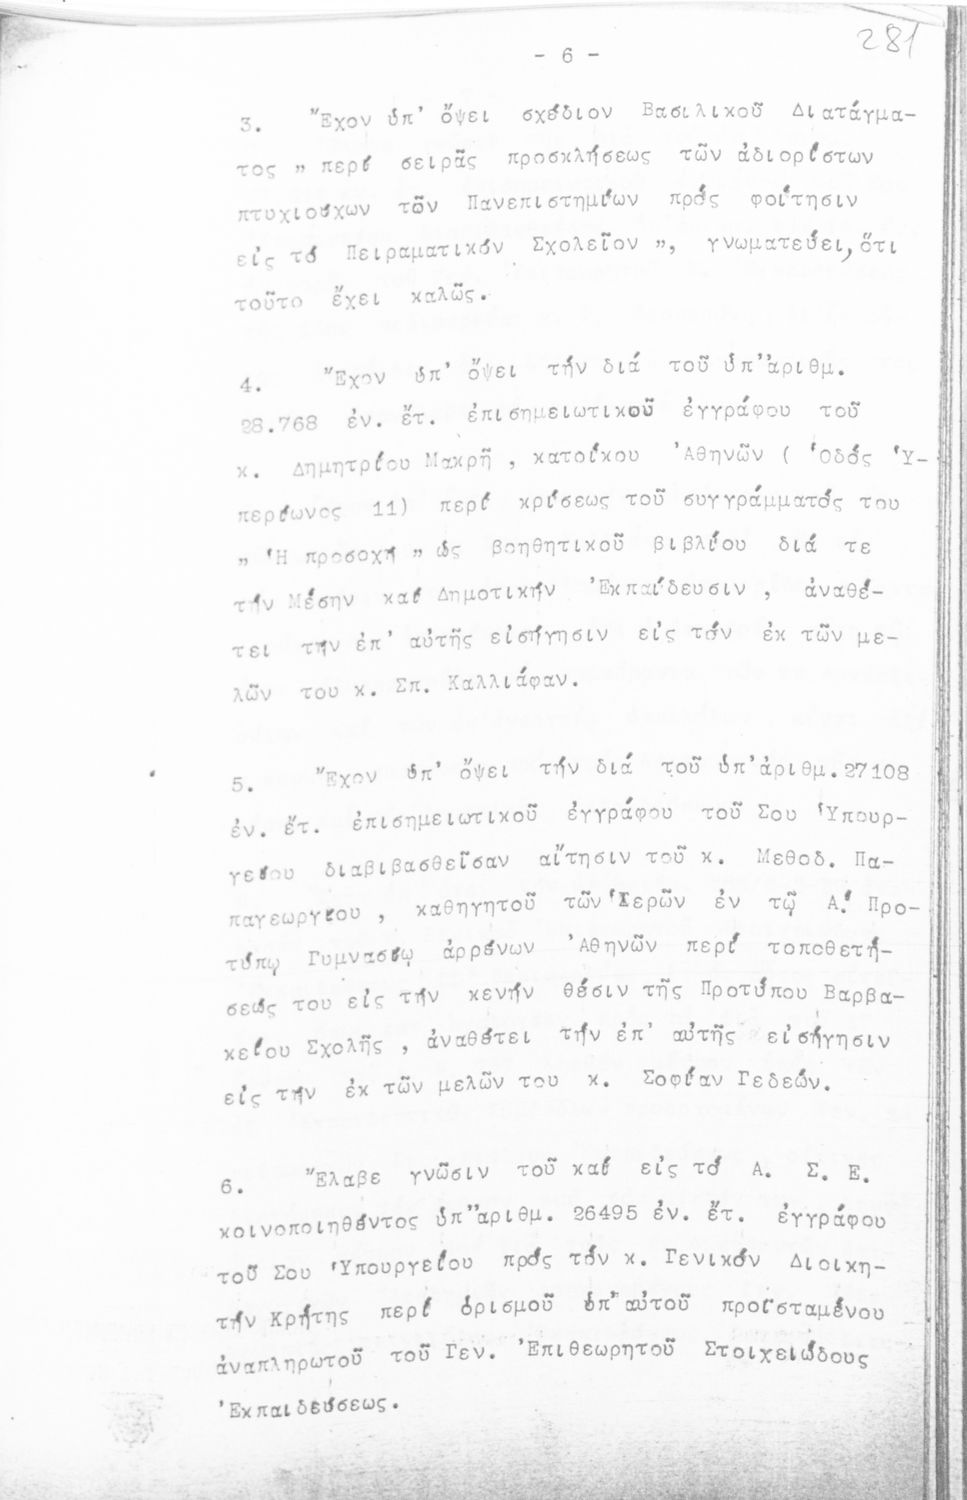 281
- 6 -
3. Ἔχον ὑπ' ὄψει σχέδιον Βασιλικοῦ Διατάγμα-
τος „ περί σειρᾶς προσκλήσεως τῶν ἀδιορίστων
πτυχιούχων τῶν Πανεπιστημίων πρός φοίτησιν
εἰς τό Πειραματικόν Σχολεῖον ”, γνωματεύει, ὅτι
τοῦτο ἔχει καλῶς.
4. Ἔχον ὑπ' ὄψει τήν διά τοῦ ὑπ' ἀριθμ.
28.768 ἐν. ἔτ. ἐπισημειωτικοῦ ἐγγράφου τοῦ
κ. Δημητρίου Μακρῆ , κατοίκου Ἀθηνῶν ( Ὁδός Ὑ-
περίωνος 11) περί κρίσεως τοῦ συγγράμματός του
„ Ἡ προσοχή ” ὡς βοηθητικοῦ βιβλίου διά τε
τήν Μέσην καί Δημοτικήν Ἐκπαίδευσιν , ἀναθέ-
τει τήν ἐπ' αὐτῆς εἰσήγησιν εἰς τόν ἐκ τῶν με-
λῶν του κ. Σπ. Καλλιάφαν.
5. Ἔχον ὑπ' ὄψει τήν διά τοῦ ὑπ' ἀριθμ. 27108
ἐν. ἔτ. ἐπισημειωτικοῦ ἐγγράφου τοῦ Σου Ὑπουρ-
γείου διαβιβασθεῖσαν αἴτησιν τοῦ κ. Μεθοδ. Πα-
παγεωργίου , καθηγητοῦ τῶν Ἱερῶν ἐν τῷ Α! Προ-
τύπῳ Γυμνασίῳ ἀρρένων Ἀθηνῶν περί τοποθετή-
σεώς του εἰς τήν κενήν θέσιν τῆς Προτύπου Βαρβα-
κείου Σχολῆς , ἀναθέτει τήν ἐπ' αὐτῆς εἰσήγησιν
εἰς τήν ἐκ τῶν μελῶν του κ. Σοφίαν Γεδεών.
6. Ἔλαβε γνῶσιν τοῦ καί εἰς τό Α. Σ. Ε.
κοινοποιηθέντος ὑπ' ἀριθμ. 26495 ἐν. ἔτ. ἐγγράφου
τοῦ Σου Ὑπουργείου πρός τόν κ. Γενικόν Διοικη-
τήν Κρήτης περί ὁρισμοῦ ὑπ' αὐτοῦ προϊσταμένου
ἀναπληρωτοῦ τοῦ Γεν. Ἐπιθεωρητοῦ Στοιχειώδους
Ἐκπαιδεύσεως.